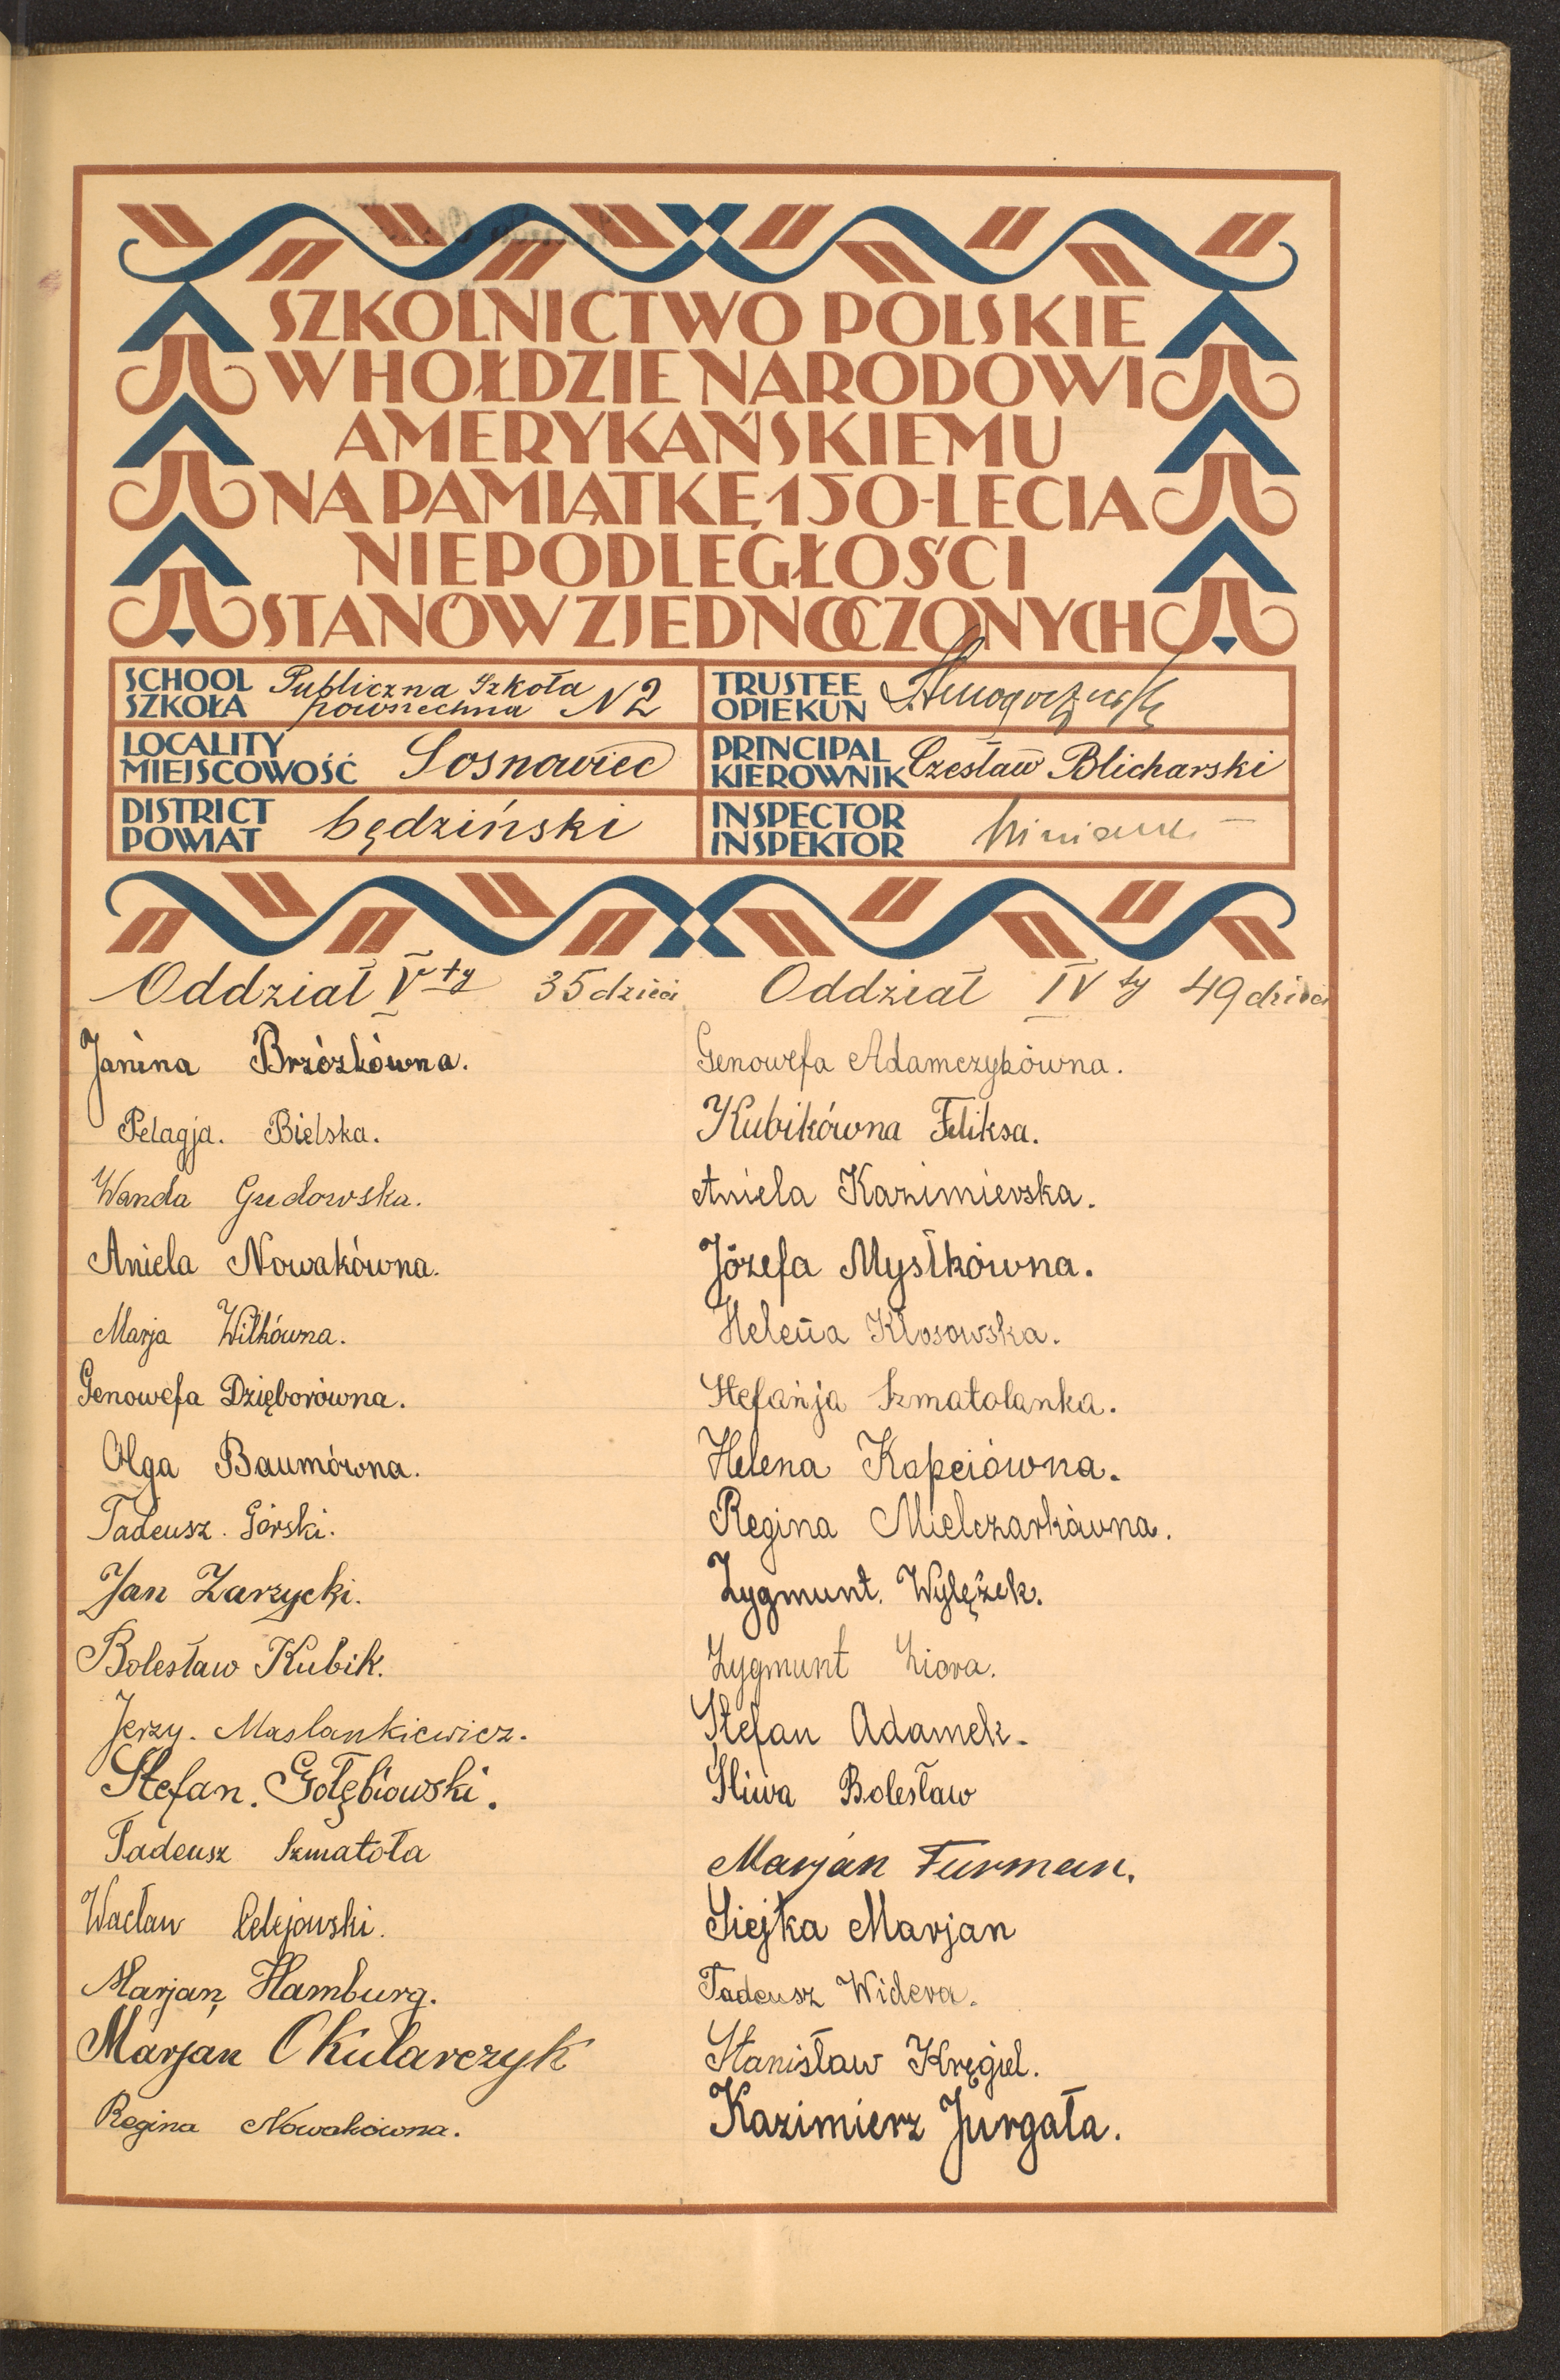 SZKOLNICTWO POLSKIE
W HOŁDZIE NARODOWI
AMERYKAŃSKIEMU
NA PAMIĄTKĘ 150-LECIA
NIEPODLEGŁOŚCI
STANÓW ZJEDNOCZONYCH
SCHOOL
SZKOŁA
Publiczna Szkoła
powszechna N 2
TRUSTEE
OPIEKUN
LOCALITY
MIEJSCOWOŚĆ
Sosnowiec
PRINCIPAL
KIEROWNIK
Czesław Blicharski
DISTRICT
POWIAT
będziński
INSPECTOR
INSPEKTOR
Oddział V ty 35 dzieci
Janina Brzózkówna.
Pelagja. Bielska.
Wanda Gudowska.
Aniela Nowakówna.
Marja Wilkówna.
Genowefa Dzięborówna.
Olga Baumówna.
Tadeusz. Górski.
Jan Zarzycki.
Bolesław Kubik.
Jerzy. Maslankiewicz.
Stefan. Gołębiowski.
Tadeusz Szmatoła
Wacław Celejowski.
Marjan Hamburg.
Marjan Okularczyk
Regina Nowakówna.
Oddział IV ty 49 dzieci
Genowefa Adamczykówna.
Kubikówna Feliksa.
Aniela Kazimierska.
Józefa Mysłkówna.
Helena Kłosowska.
Stefanja Szmatolanka.
Helena Kapciówna.
Regina Mielczarkówna.
Zygmunt. Wylężek.
Zygmunt Ziora.
Stefan Adamek.
Śliwa Bolesław
Marjan Furman.
Siejka Marjan
Tadeusz Widera.
Stanisław Kręgiel.
Kazimierz Jurgała.